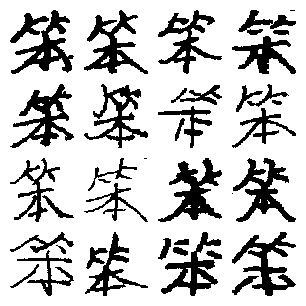 笨笨笨笨
笨笨笨笨
笨笨笨笨
笨笨笨笨